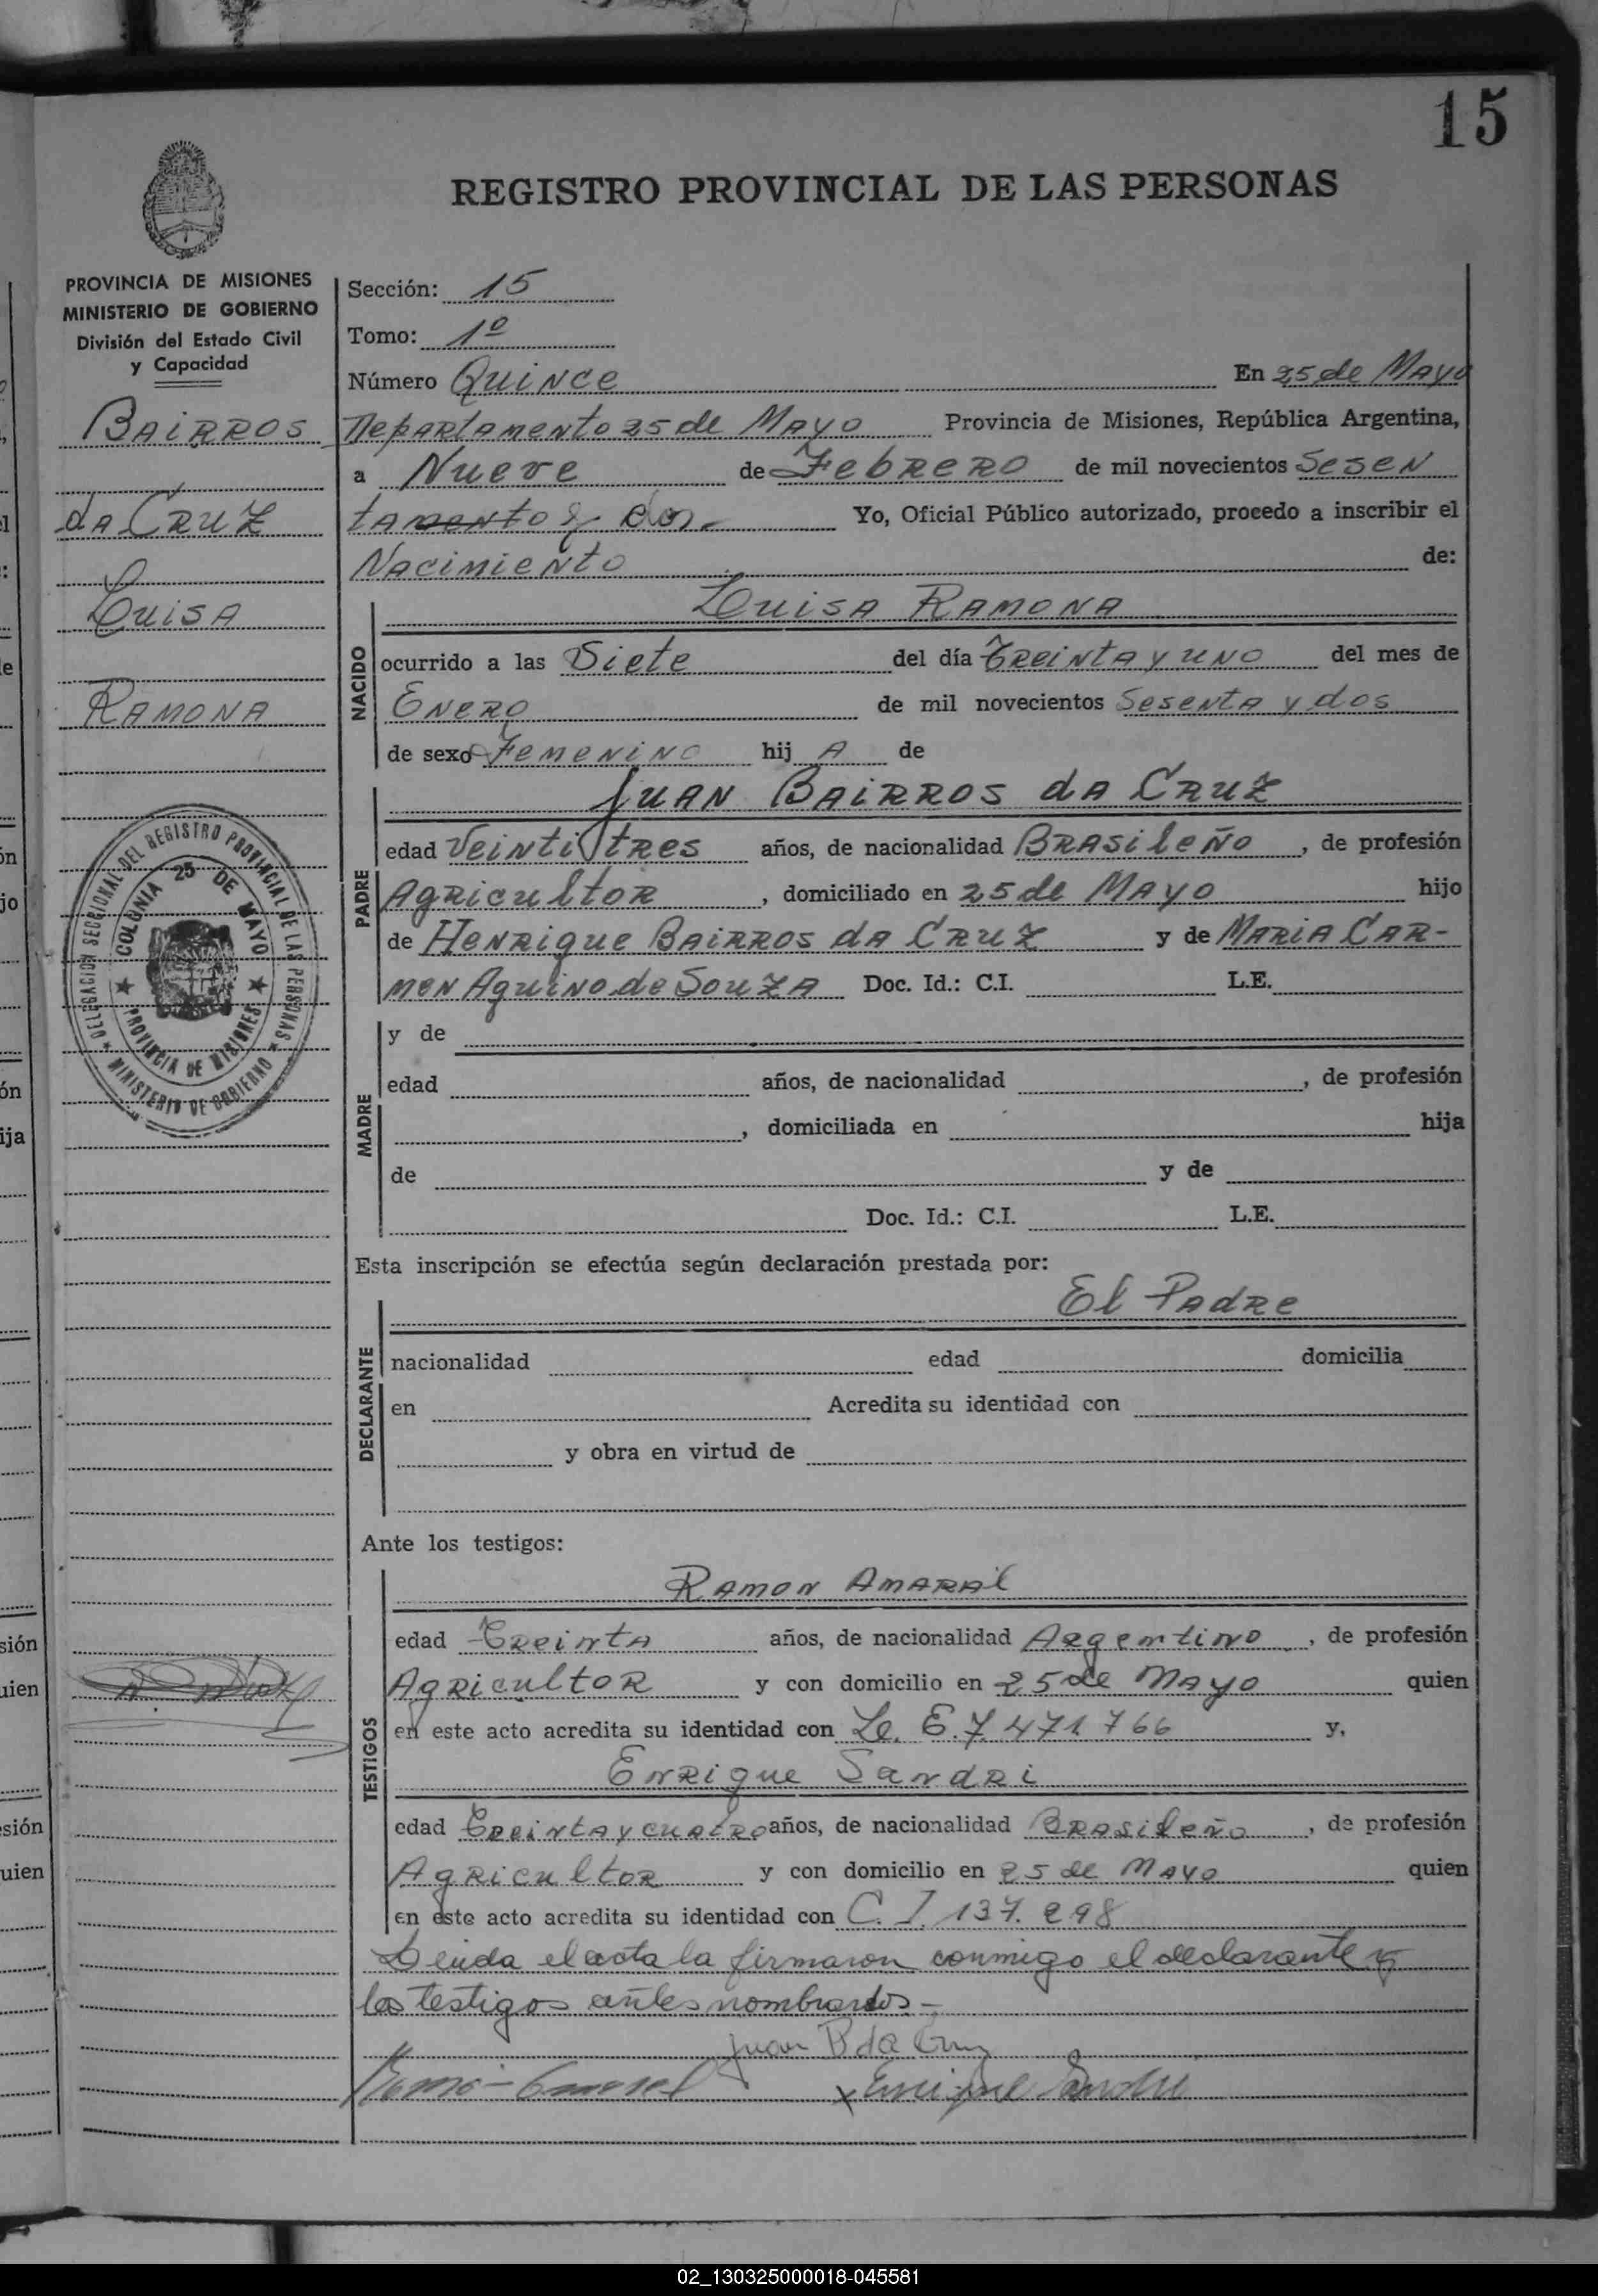 15
REGISTRO PROVINCIAL DE LAS PERSONAS
PROVINCIA DE MISIONES
MINISTERIO DE GOBIERNO
División del Estado Civil
y Capacidad
BAIRROS
da CRUZ
LUISA
RAMONA
DELEGACION SECCIONAL DEL REGISTRO PROVINCIAL DE LAS PERSONAS
★ MINISTERIO DE GOBIERNO ★
COLONIA 25 DE MAYO
★ PROVINCIA DE MISIONES ★
Sección: 15
Tomo: 1º
Número Quince En 25 de Mayo
Departamento 25 de Mayo Provincia de Misiones, República Argentina,
a Nueve de Febrero de mil novecientos Sesen
ta y dos.- Yo, Oficial Público autorizado, procedo a inscribir el
Nacimiento de:
Luisa Ramona
NACIDO
ocurrido a las Siete del día Treinta y uno del mes de
Enero de mil novecientos Sesenta y dos
de sexo Femenino hij A de
Juan Bairros da Cruz
PADRE
edad Veintitres años, de nacionalidad Brasileño, de profesión
Agricultor, domiciliado en 25 de Mayo hijo
de Henrique Bairros da Cruz y de Maria Car-
men Aquino de Souza Doc. Id.: C.I. L.E.
MADRE
y de
edad años, de nacionalidad , de profesión
, domiciliada en hija
de y de
Doc. Id.: C.I. L.E.
Esta inscripción se efectúa según declaración prestada por:
El Padre
DECLARANTE
nacionalidad edad domicilia
en Acredita su identidad con
y obra en virtud de
Ante los testigos:
Ramon Amaral
TESTIGOS
edad Treinta años, de nacionalidad Argentino, de profesión
Agricultor y con domicilio en 25 de Mayo quien
en este acto acredita su identidad con Le. E. 7.471766 y,
Enrique Sandri
edad Treinta y cuatro años, de nacionalidad Brasileño, de profesión
Agricultor y con domicilio en 25 de Mayo quien
en este acto acredita su identidad con C. I. 137.298
Leida el acta la firmaron conmigo el declarante y
los testigos antes nombrados-
Juan B da Cruz
x Enrique Sandri
02_130325000018-045581